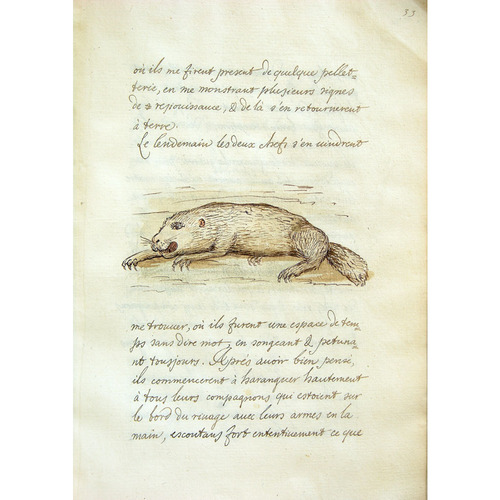 53
où ils me firent present de quelque pellet=
terie, en me monstrant plusieurs signes
de rejouissance, & de là s'en retournerent
à terre.
Le lendemain les deux chefs s'en vindrent
me trouver, où ils furent une espace de tem=
ps sans dire mot, en songeant & petuna=
nt tousjours. Aprés avoir bien pensé,
ils commencerent à haranguer hautement
à tous leurs compagnons qui estoient sur
le bord du rivage avec leurs armes en la
main, escoutans fort ententivement ce que